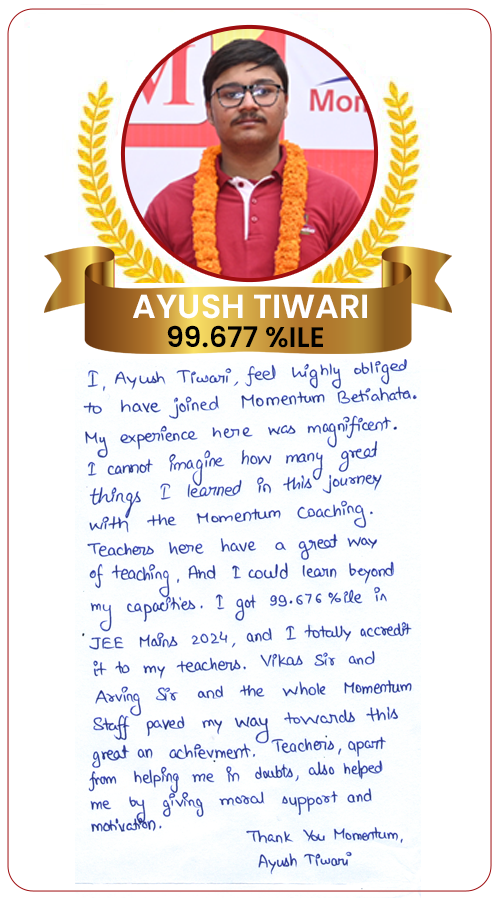 M
Mom
AYUSH TIWARI
99.677 %ILE
I, Ayush Tiwari, feel highly obliged
to have joined Momentum Betiahata.
My experience here was magnificent.
I cannot imagine how many great
things I learned in this journey
with the Momentum Coaching.
Teachers here have a great way
of teaching, And I could learn beyond
my capacities. I got 99.676 %ile in
JEE Mains 2024, and I totally accredit
it to my teachers. Vikas Sir and
Arving Sir and the whole Momentum
Staff paved my way towards this
great an achievment. Teachers, apart
from helping me in doubts, also helped
me by giving moral support and
motivation.
Thank You Momentum,
Ayush Tiwari